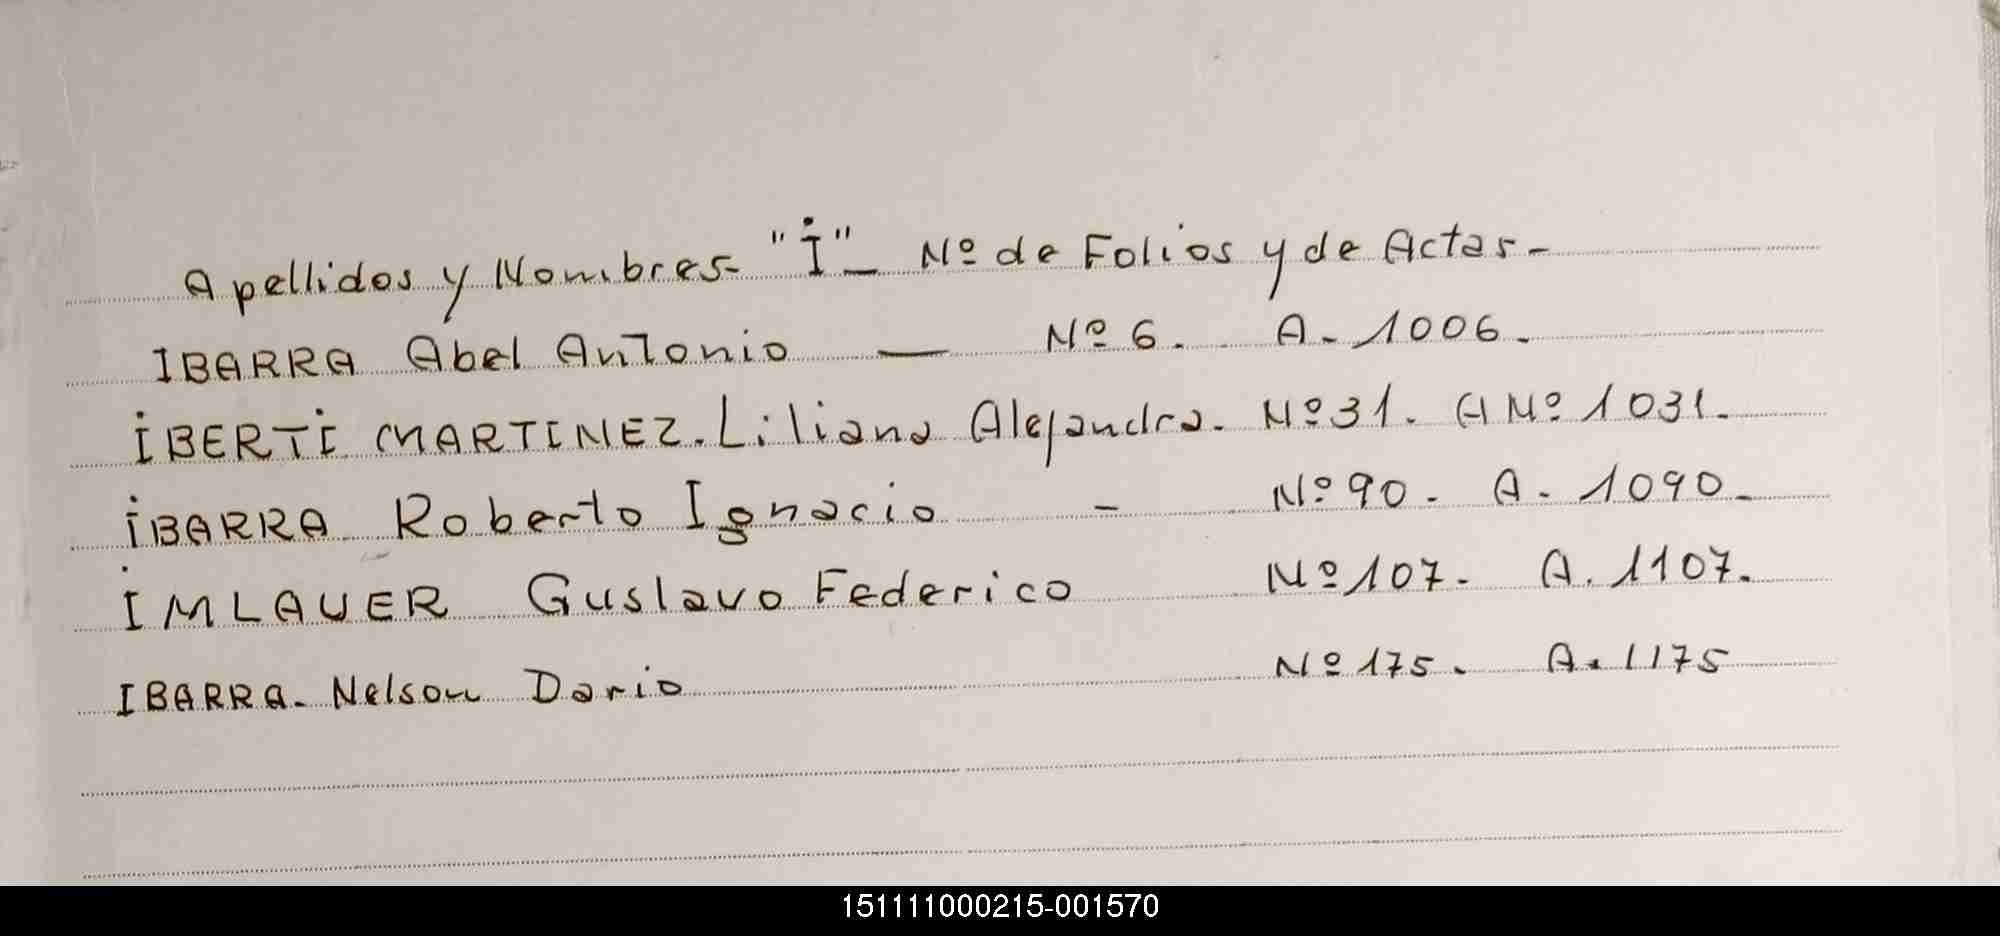 Apellidos y Nombres- "I"_ Nº de Folios y de Actas-
IBARRA Abel Antonio — Nº 6. A- 1006.
IBERTI MARTINEZ. Liliana Alejandra. Nº 31. A Nº 1031.
IBARRA Roberto Ignacio - Nº 90. A. 1090-
IMLAUER Gustavo Federico Nº 107. A. 1107.
IBARRA. Nelson Dario Nº 175. A. 1175
151111000215-001570